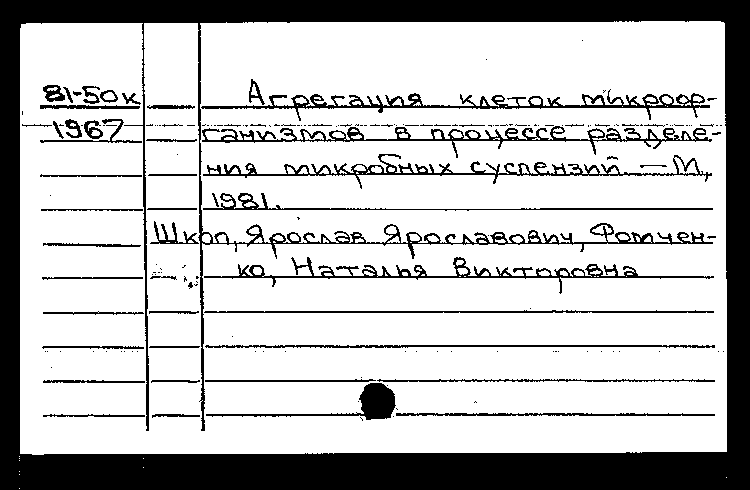 81-50к Агрегация клеток микроор-
1967 ганизмов в процессе разделе-
ния микробных суспензий. — М.,
1981.
Шкоп, Ярослав Ярославович, Фомчен-
ко, Наталья Викторовна